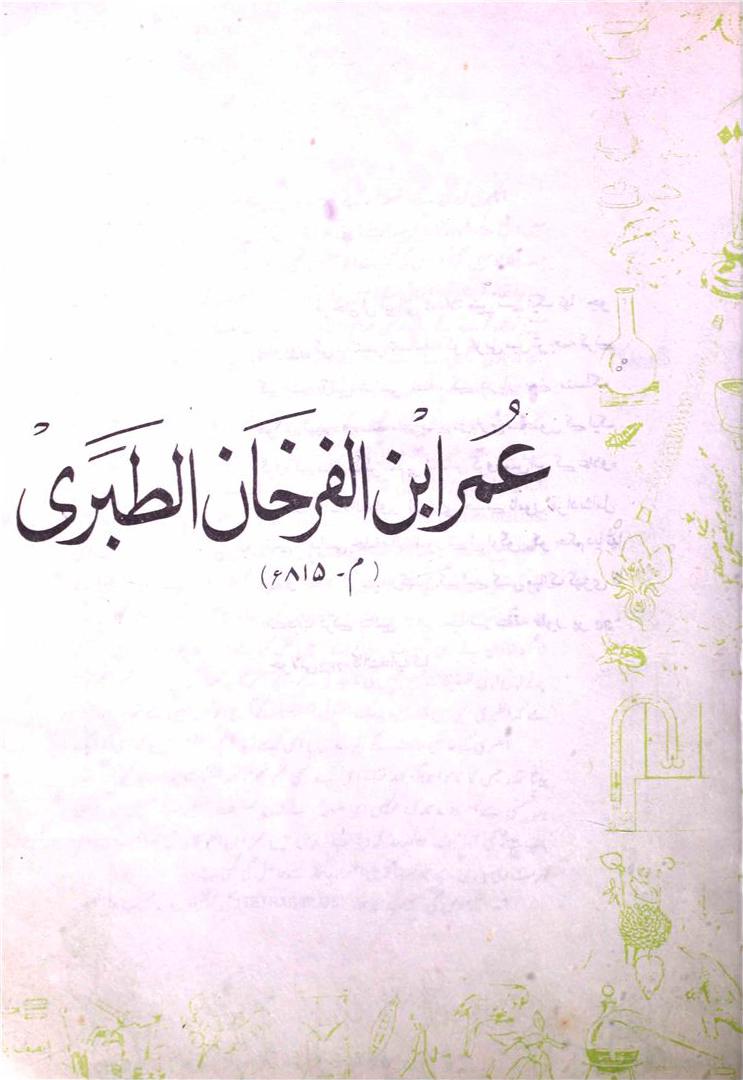 عُمر ابْن الفرخَان الطبَرىْ
(م - ۸۱۵ء)